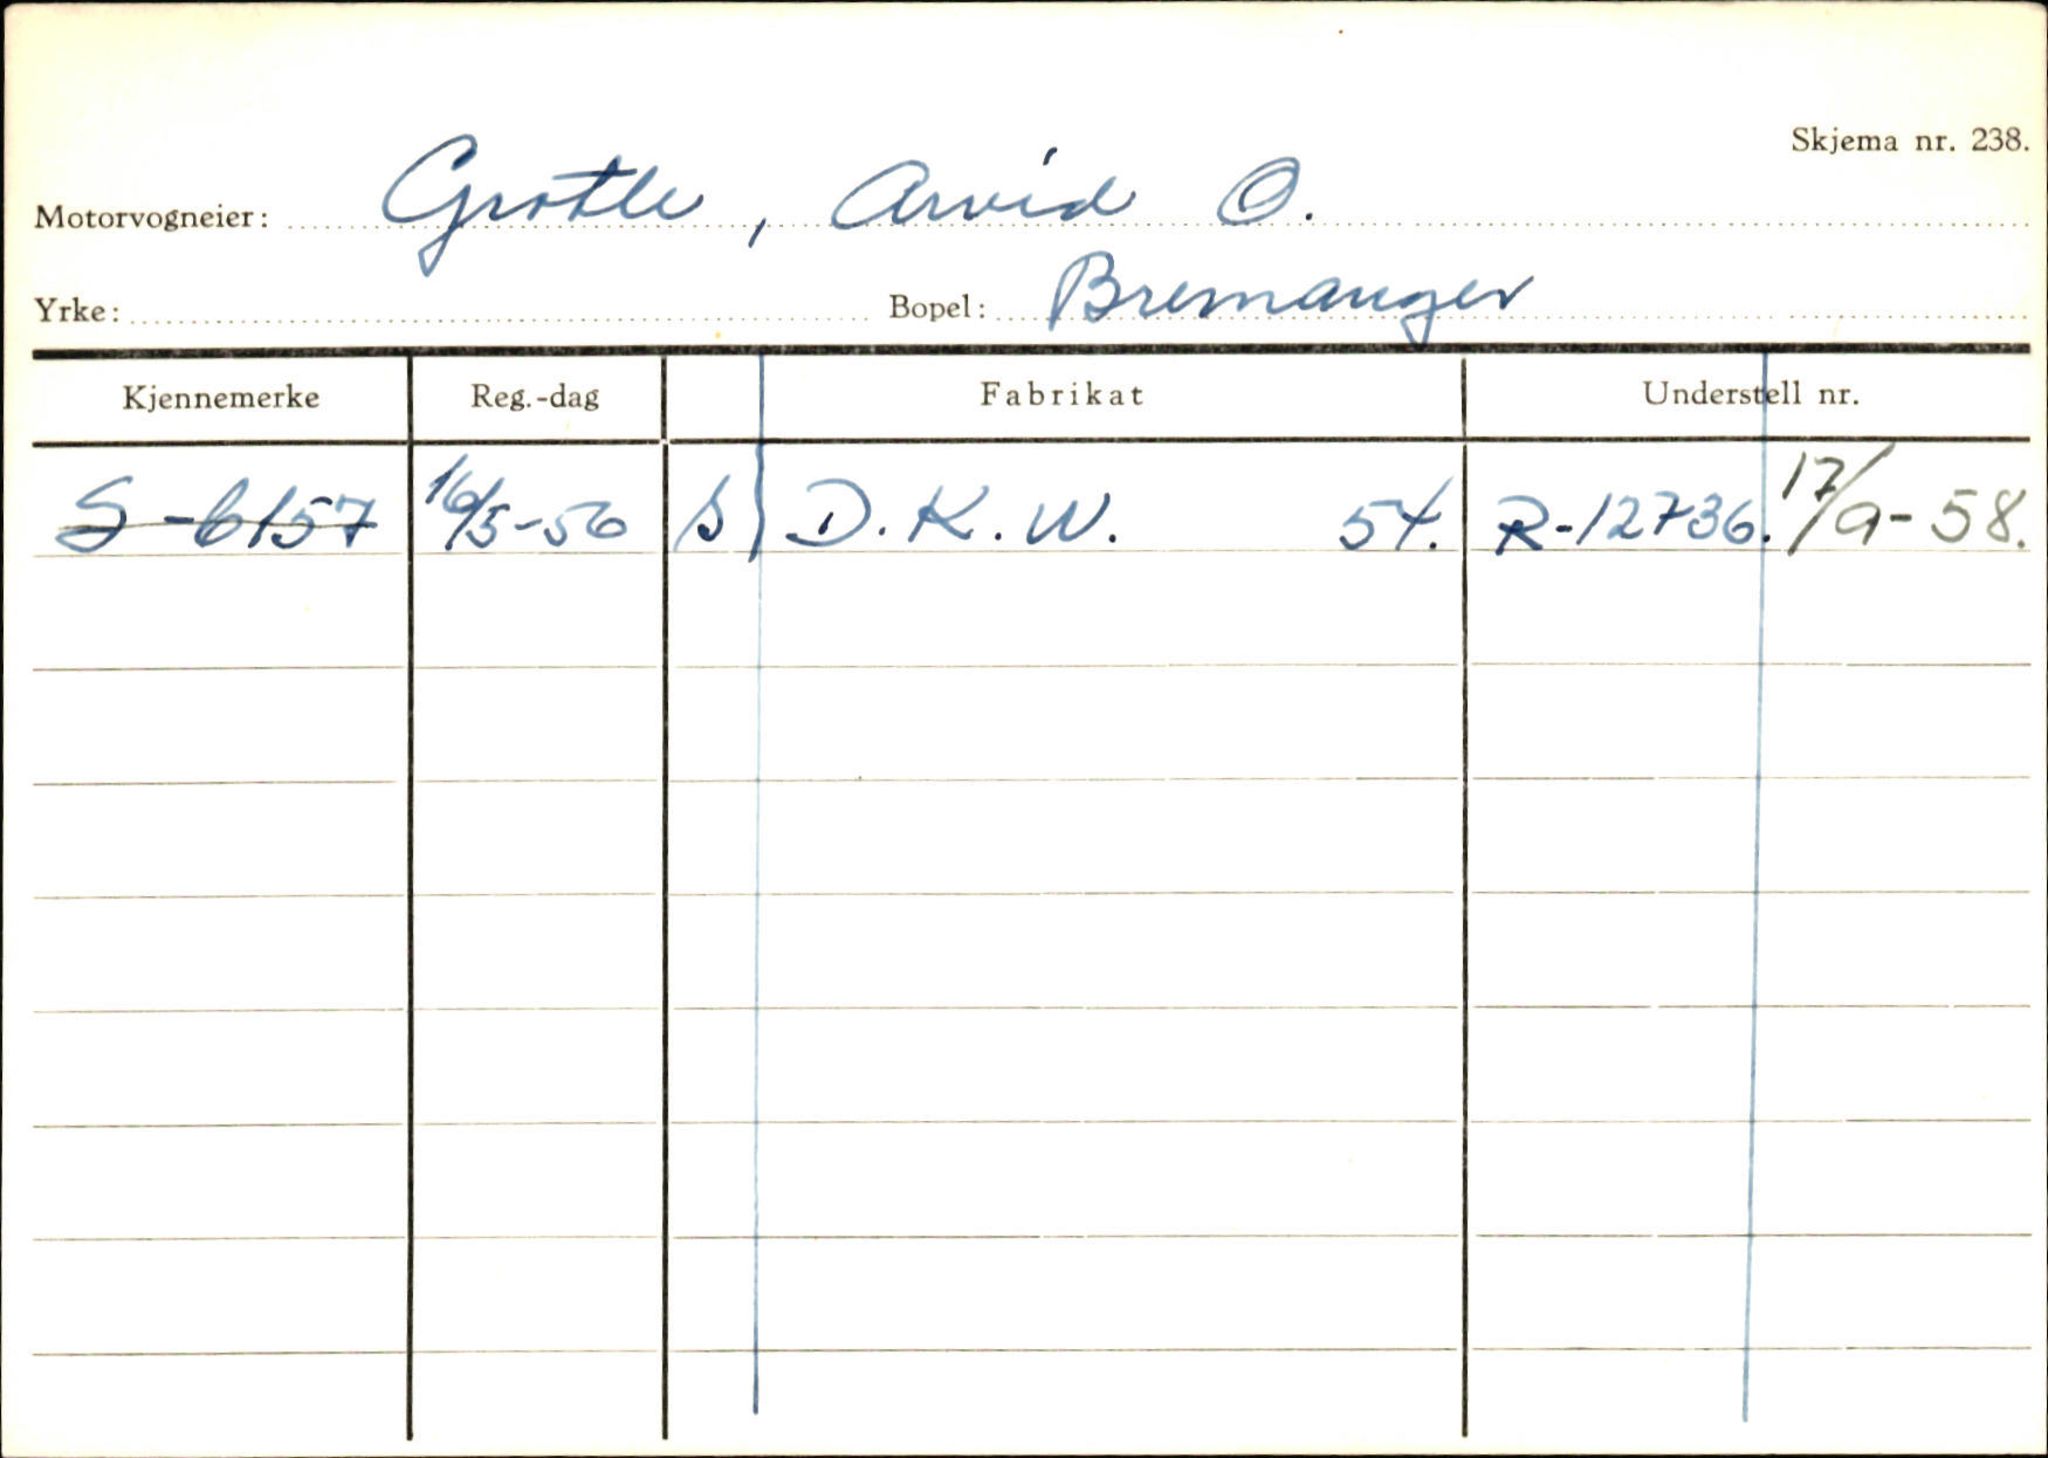 Skjema nr. 238.
Motorvogneier: Grotle, Arvid O.
Yrke: Bopel: Bremanger
Kjennemerke Reg.-dag Fabrikat Understell nr.
S-6157 16/5-56 D.K.W. 54. R-12736. 17/9-58.